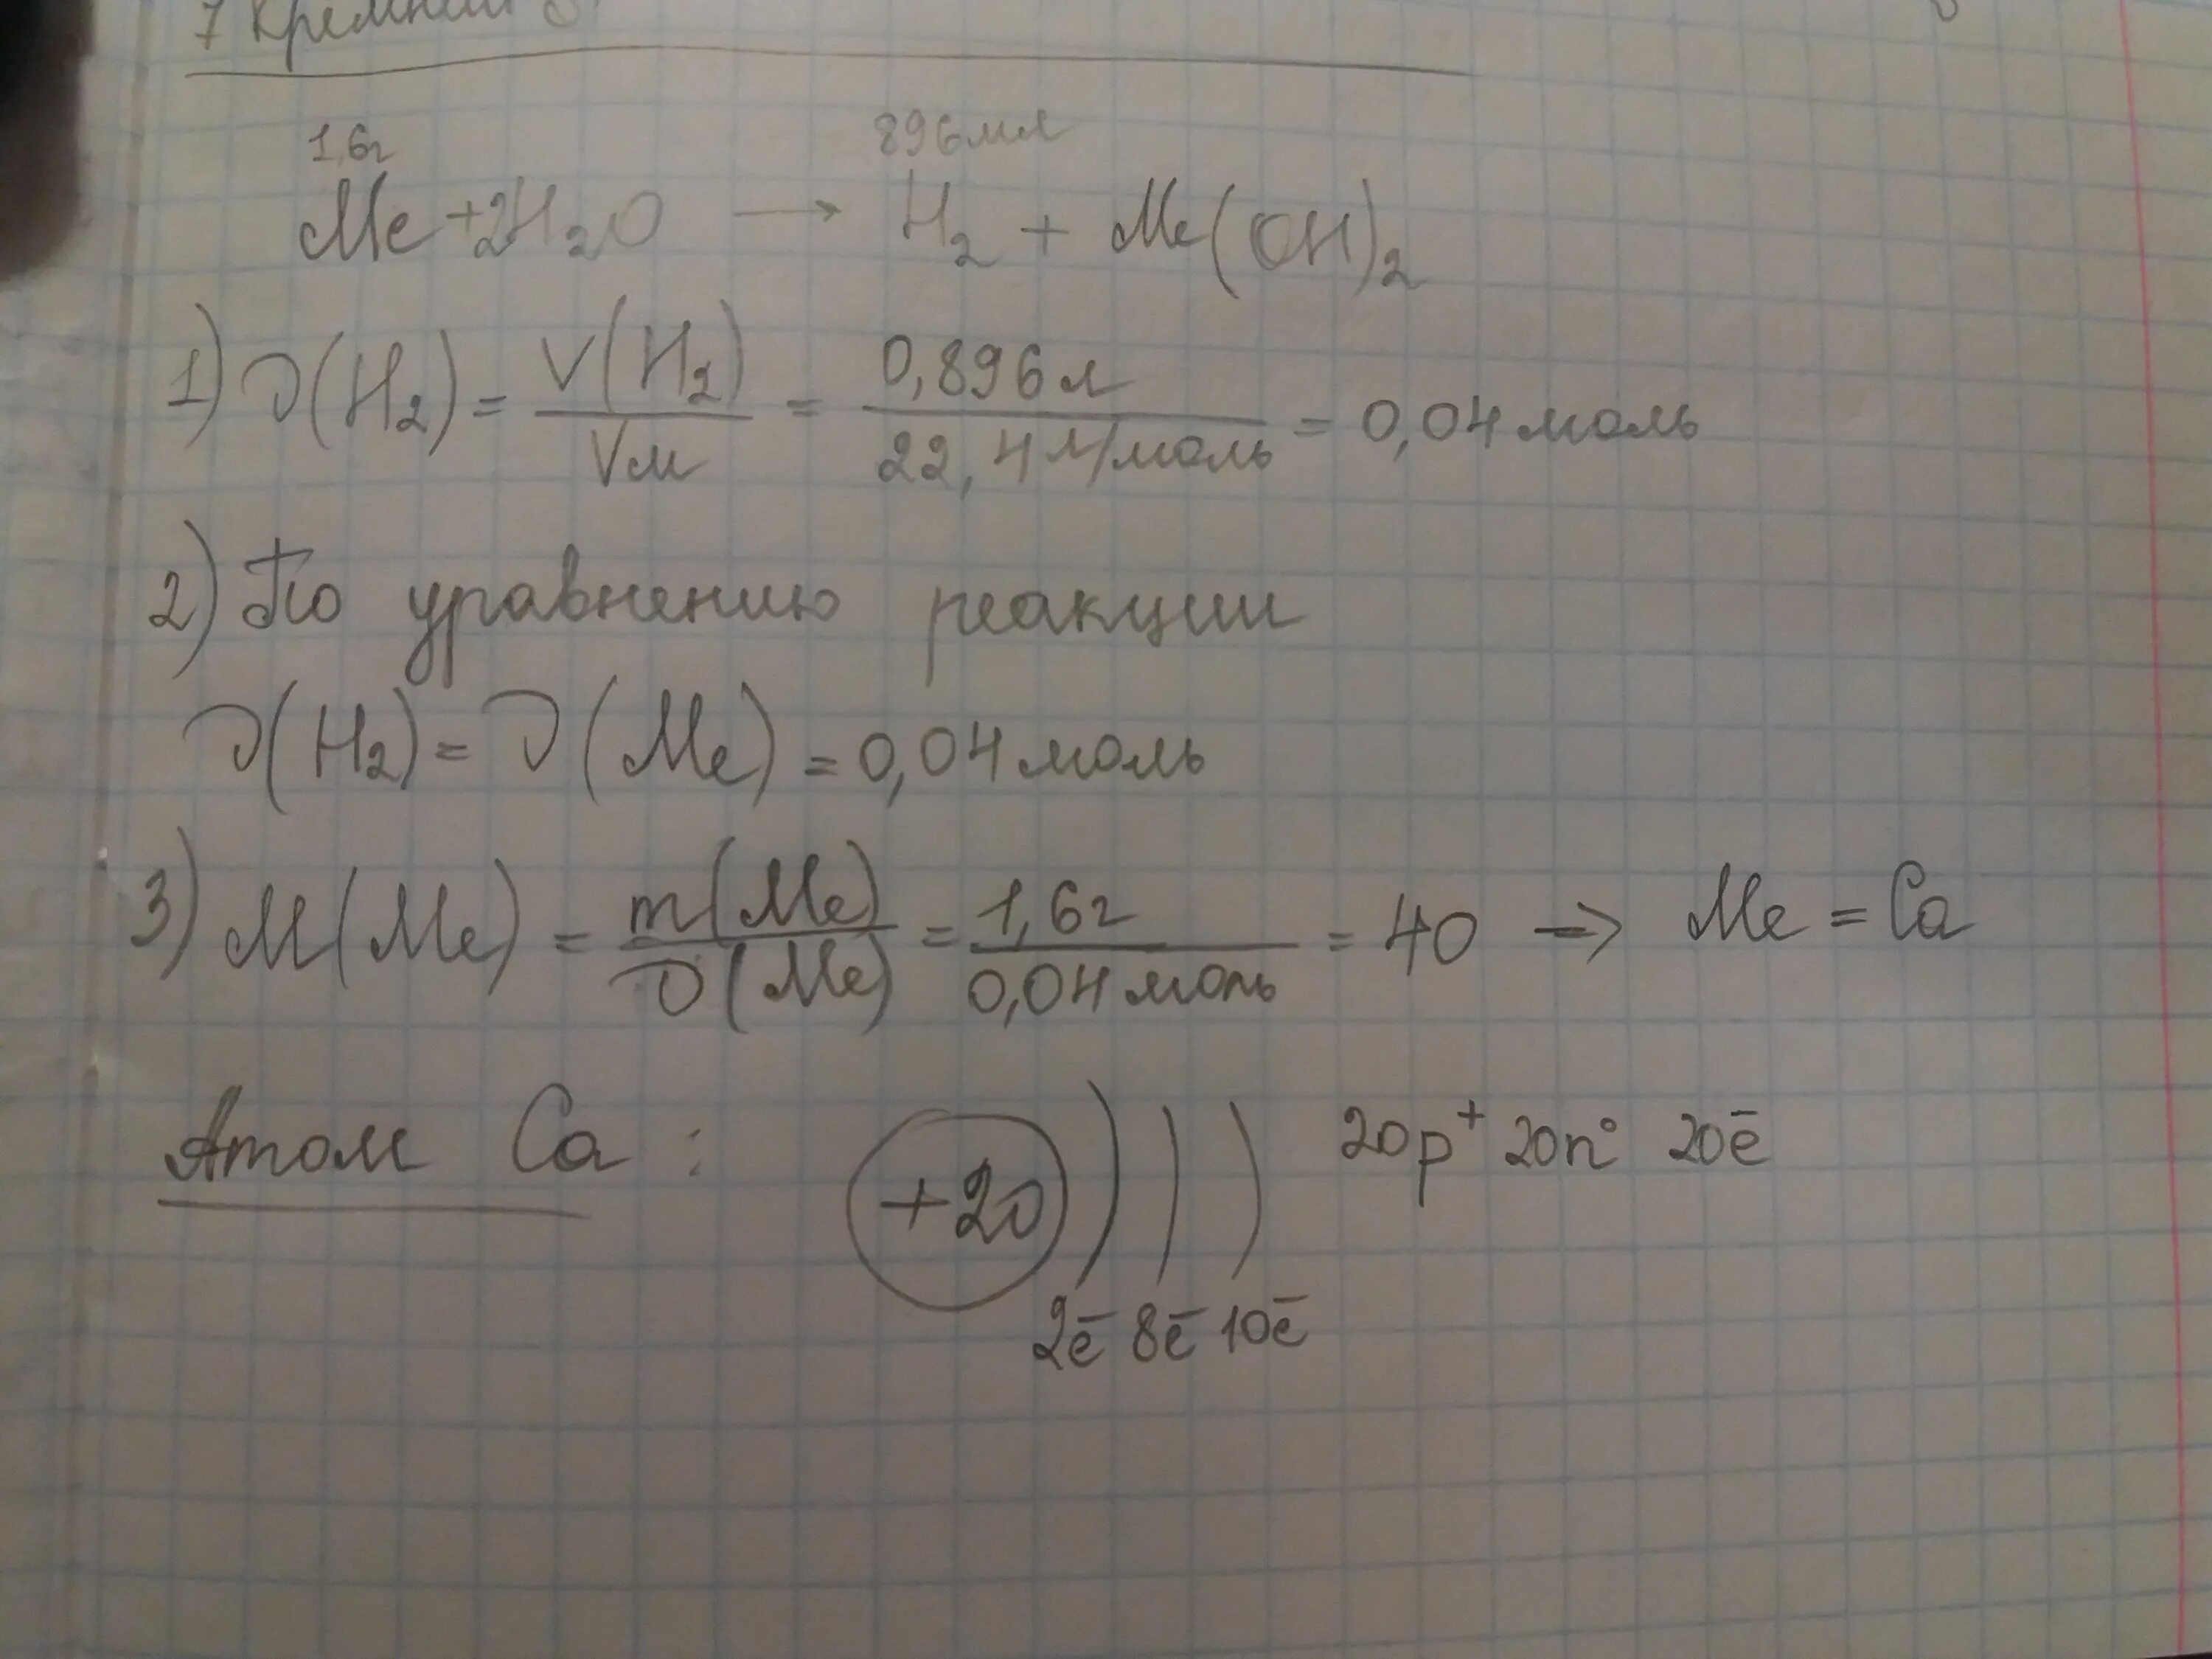 7 Кремний
1,6г 896мл
Me + 2H₂O → H₂ + Me(OH)₂
1) ν(H₂) = V(H₂) / Vм = 0,896 л / 22,4 л/моль = 0,04 моль
2) По уравнению реакции
ν(H₂) = ν(Me) = 0,04 моль
3) M(Me) = m(Me) / ν(Me) = 1,6г / 0,04 моль = 40 → Me = Ca
Атом Ca : +20 ) ) ) 20p⁺ 20n⁰ 20ē
2ē 8ē 10ē